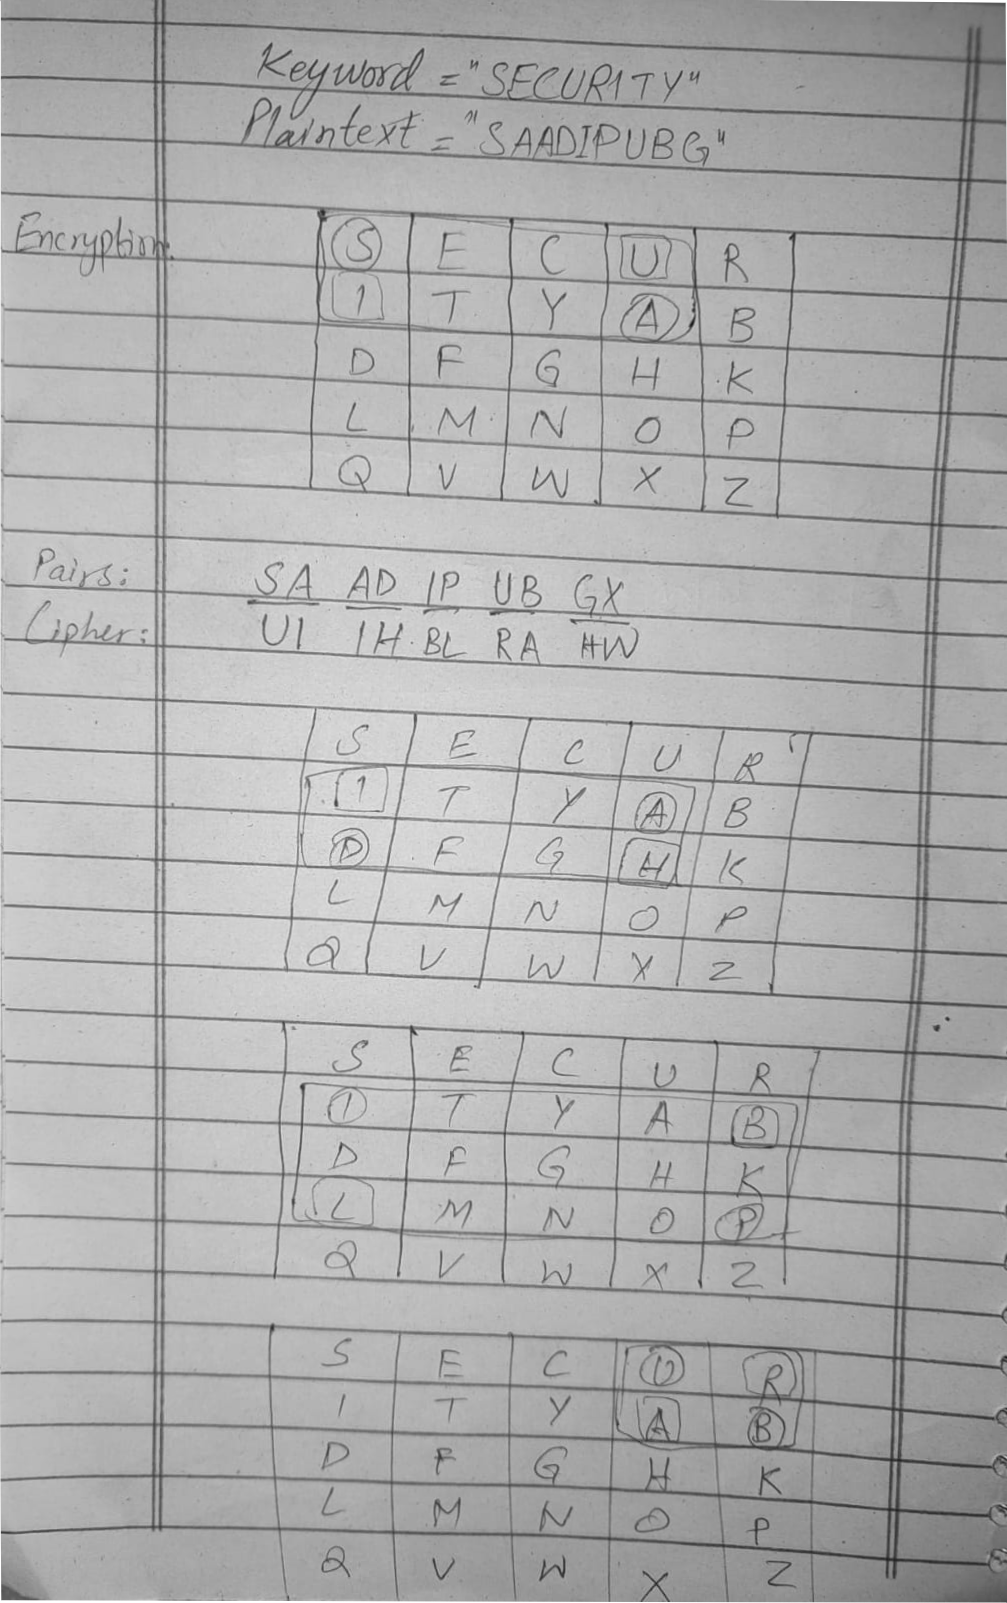 Keyword = "SECURITY"
Plaintext = "SAADIPUBG"
Encryption:
S E C U R
I T Y A B
D F G H K
L M N O P
Q V W X Z
Pairs: SA AD IP UB GX
Cipher: UI IH BL RA HW
S E C U R
I T Y A B
D F G H K
L M N O P
Q V W X Z
S E C U R
I T Y A B
D F G H K
L M N O P
Q V W X Z
S E C U R
I T Y A B
D F G H K
L M N O P
Q V W X Z